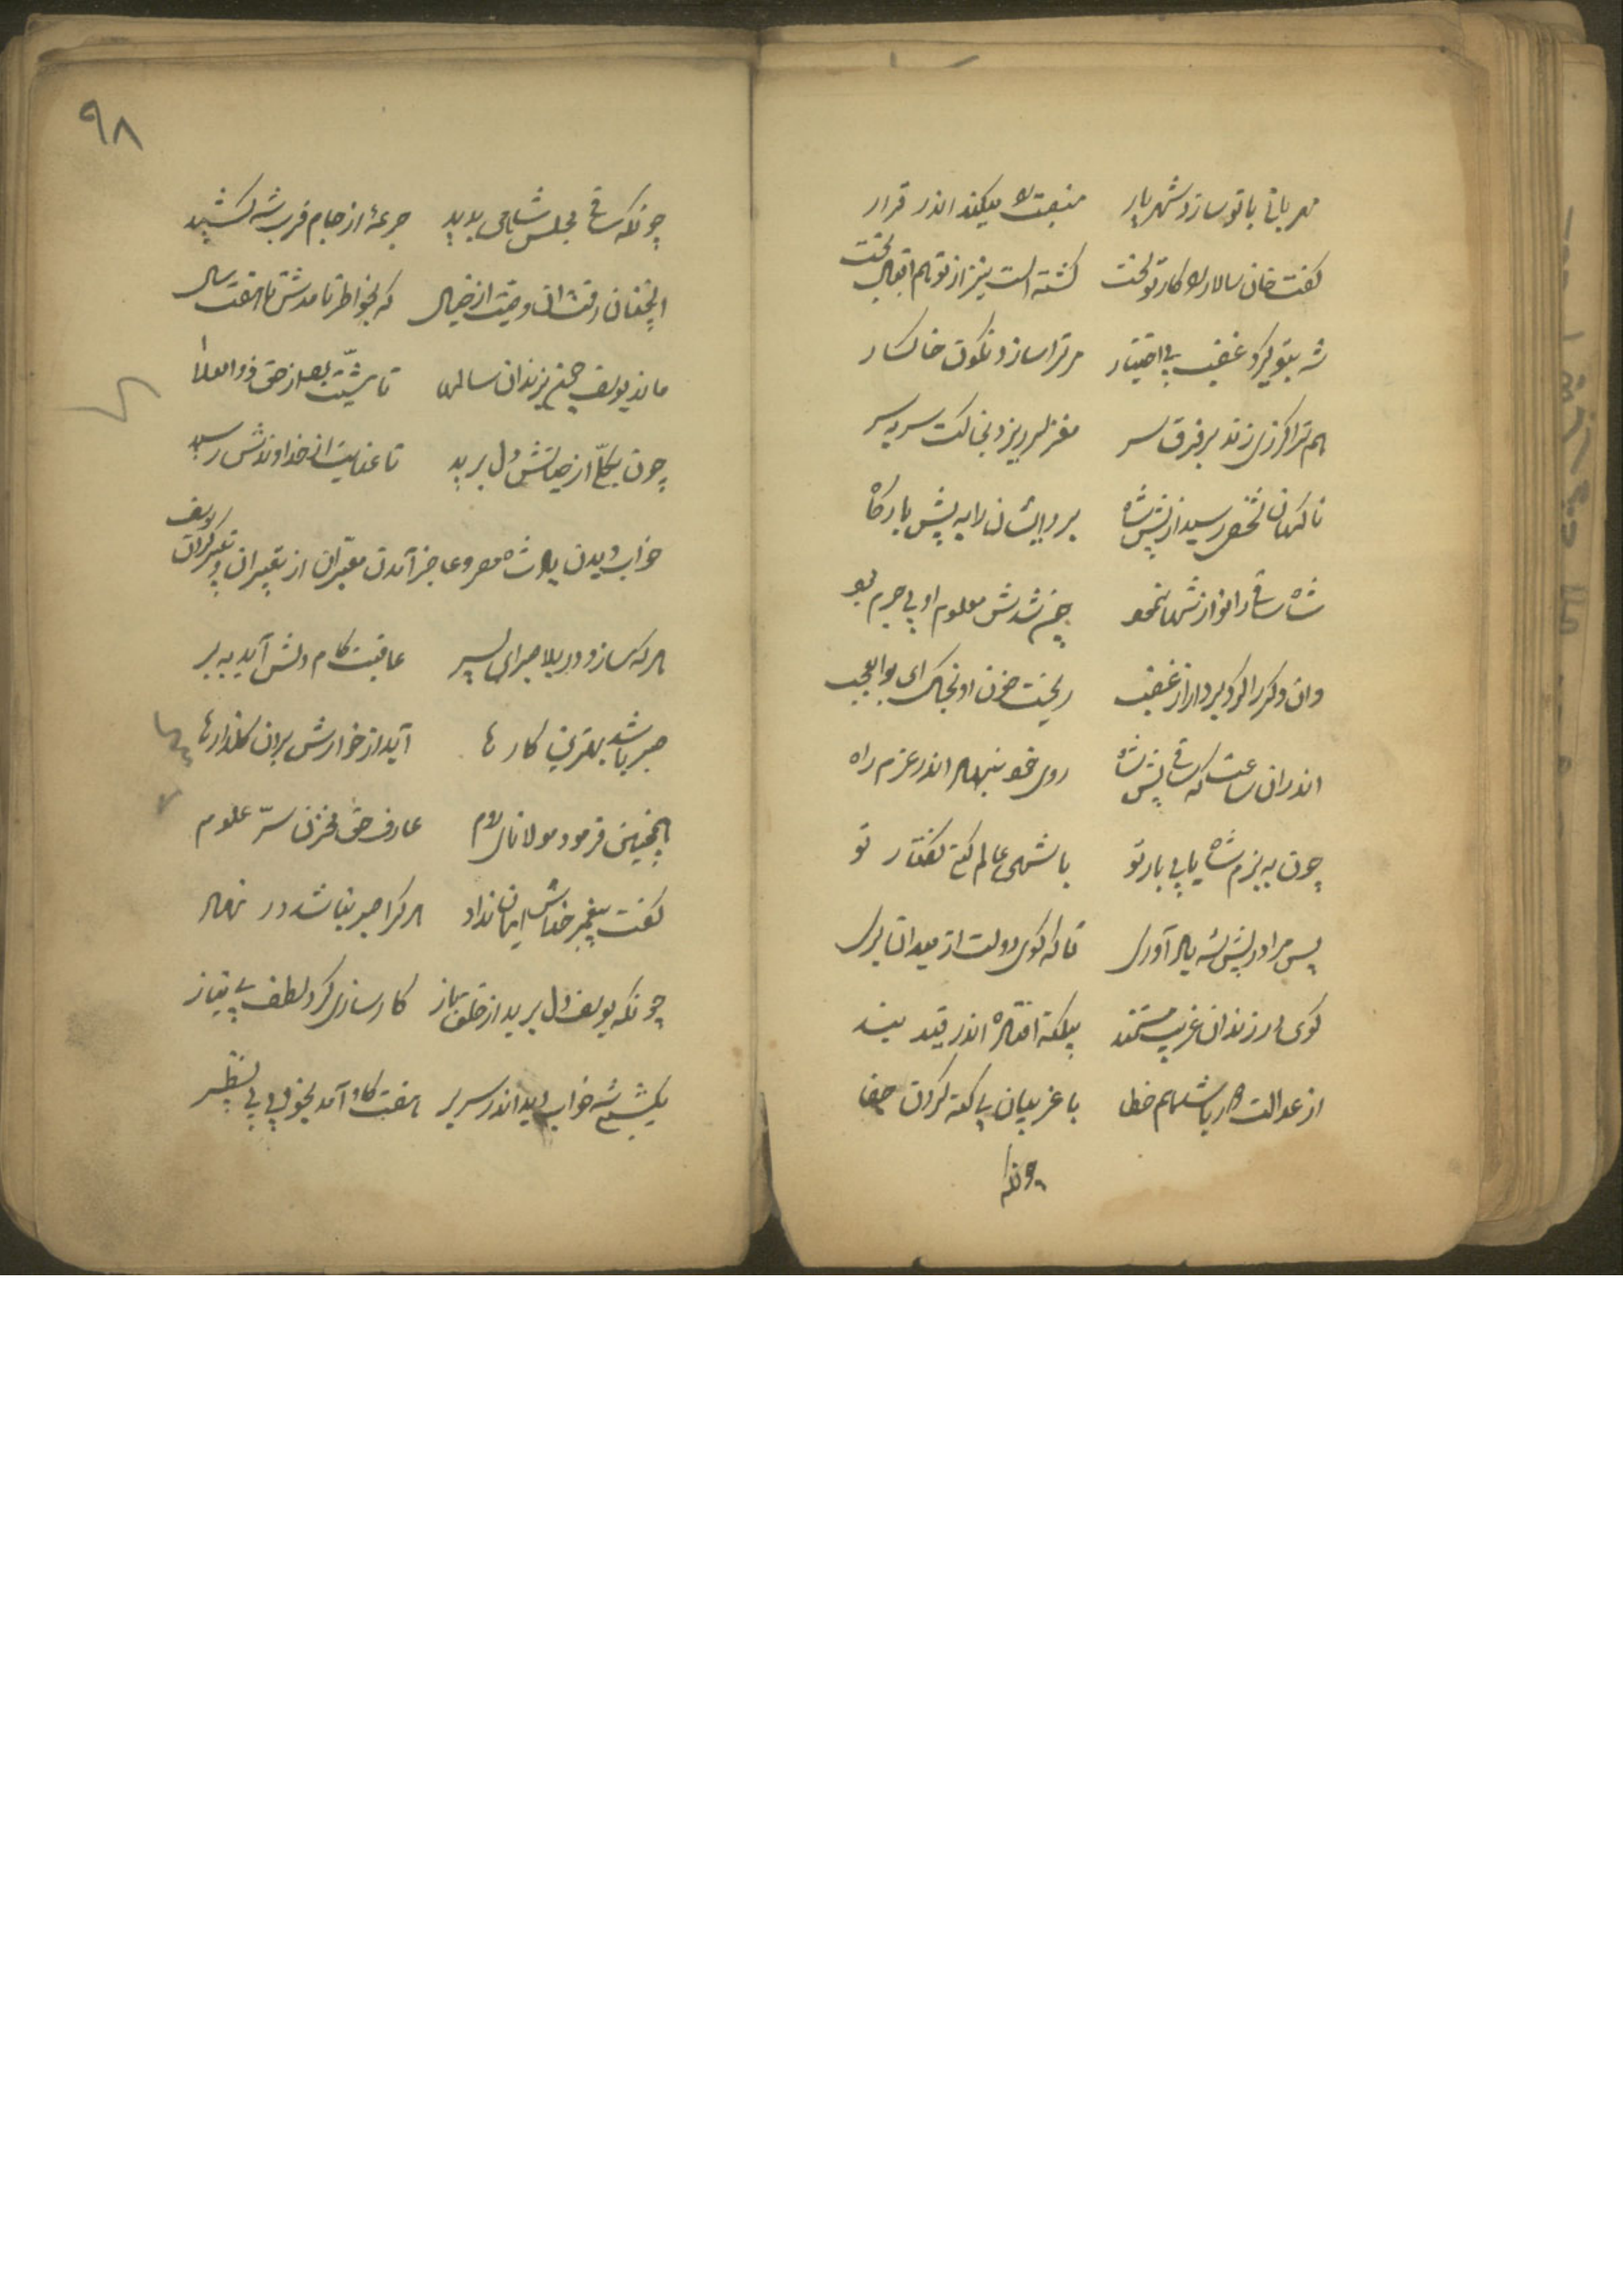 مهربانی با تو سازد شهریار منصبت را میکند اندر قرار
گفت خان سالار را کار تو سخت گشته است نیز از تو هم اقبال بخت
شه بتو گیرد غضب بی اختیار مر ترا سازد نگون خاکسار
هم ترا گرزی زند بر فرق سر مغز سر ریزد بخاکت سر بسر
ناگهان شخصی رسید از پیش شاه برد ایشان را به پیش بارگاه
شاه ساقی را نوازشها نمود چون شدش معلوم او بی جرم بود
وان دگر را کرد بر دار از غضب ریخت خون او بخاک ای بوالعجب
اندران ساعت که ساقی پیش شاه روی خود بنهاد اندر عزم راه
چون به بزم شاه یابی بار تو با شهی عالم کنی گفتار تو
پس مرا در پیش شه یاد آوری تا که گوی دولت از میدان بری
گوی در زندان غریب مستمند بیگنه افتاده اندر قید بند
از عدالت دور باشد هم خطا با غریبان بی گنه کردن جفا
چونکه
٩٨
چونکه ساقی مجلس شاهی بدید جرعهٔ از جام قرب شه کشید
آنچنان رفت آن وصیت از خیال که بخاطر نامدش تا هفت سال
ماند یوسف همچنین زندان سالها تا مشیت بعد از حق ذو العلا
چون بکلّ از حیاتش دل برید تا عنایت از خداوندش رسید
خواب دیدن پادشاه مصر و عاجز آمدن معبّران از تعبیر آن و تعبیر کردن یوسف
هر که سازد در بلا صبر ای پسر عاقبت کام دلش آید به بر
صبر باشد بهترین کار ها آید از خوارش بران گلزارها
همچنین فرمود مولانای روم عارف حق مخزن سرّ علوم
گفت پیغمبر خداش ایمان نداد هر کرا صبر نباشد در نهاد
چونکه یوسف دل برید از خلق باز کارسازی کرد لطف بی نیاز
یکشبی شه خواب دید اندر سریر هفت گاو آمد بخوبی بی نظیر